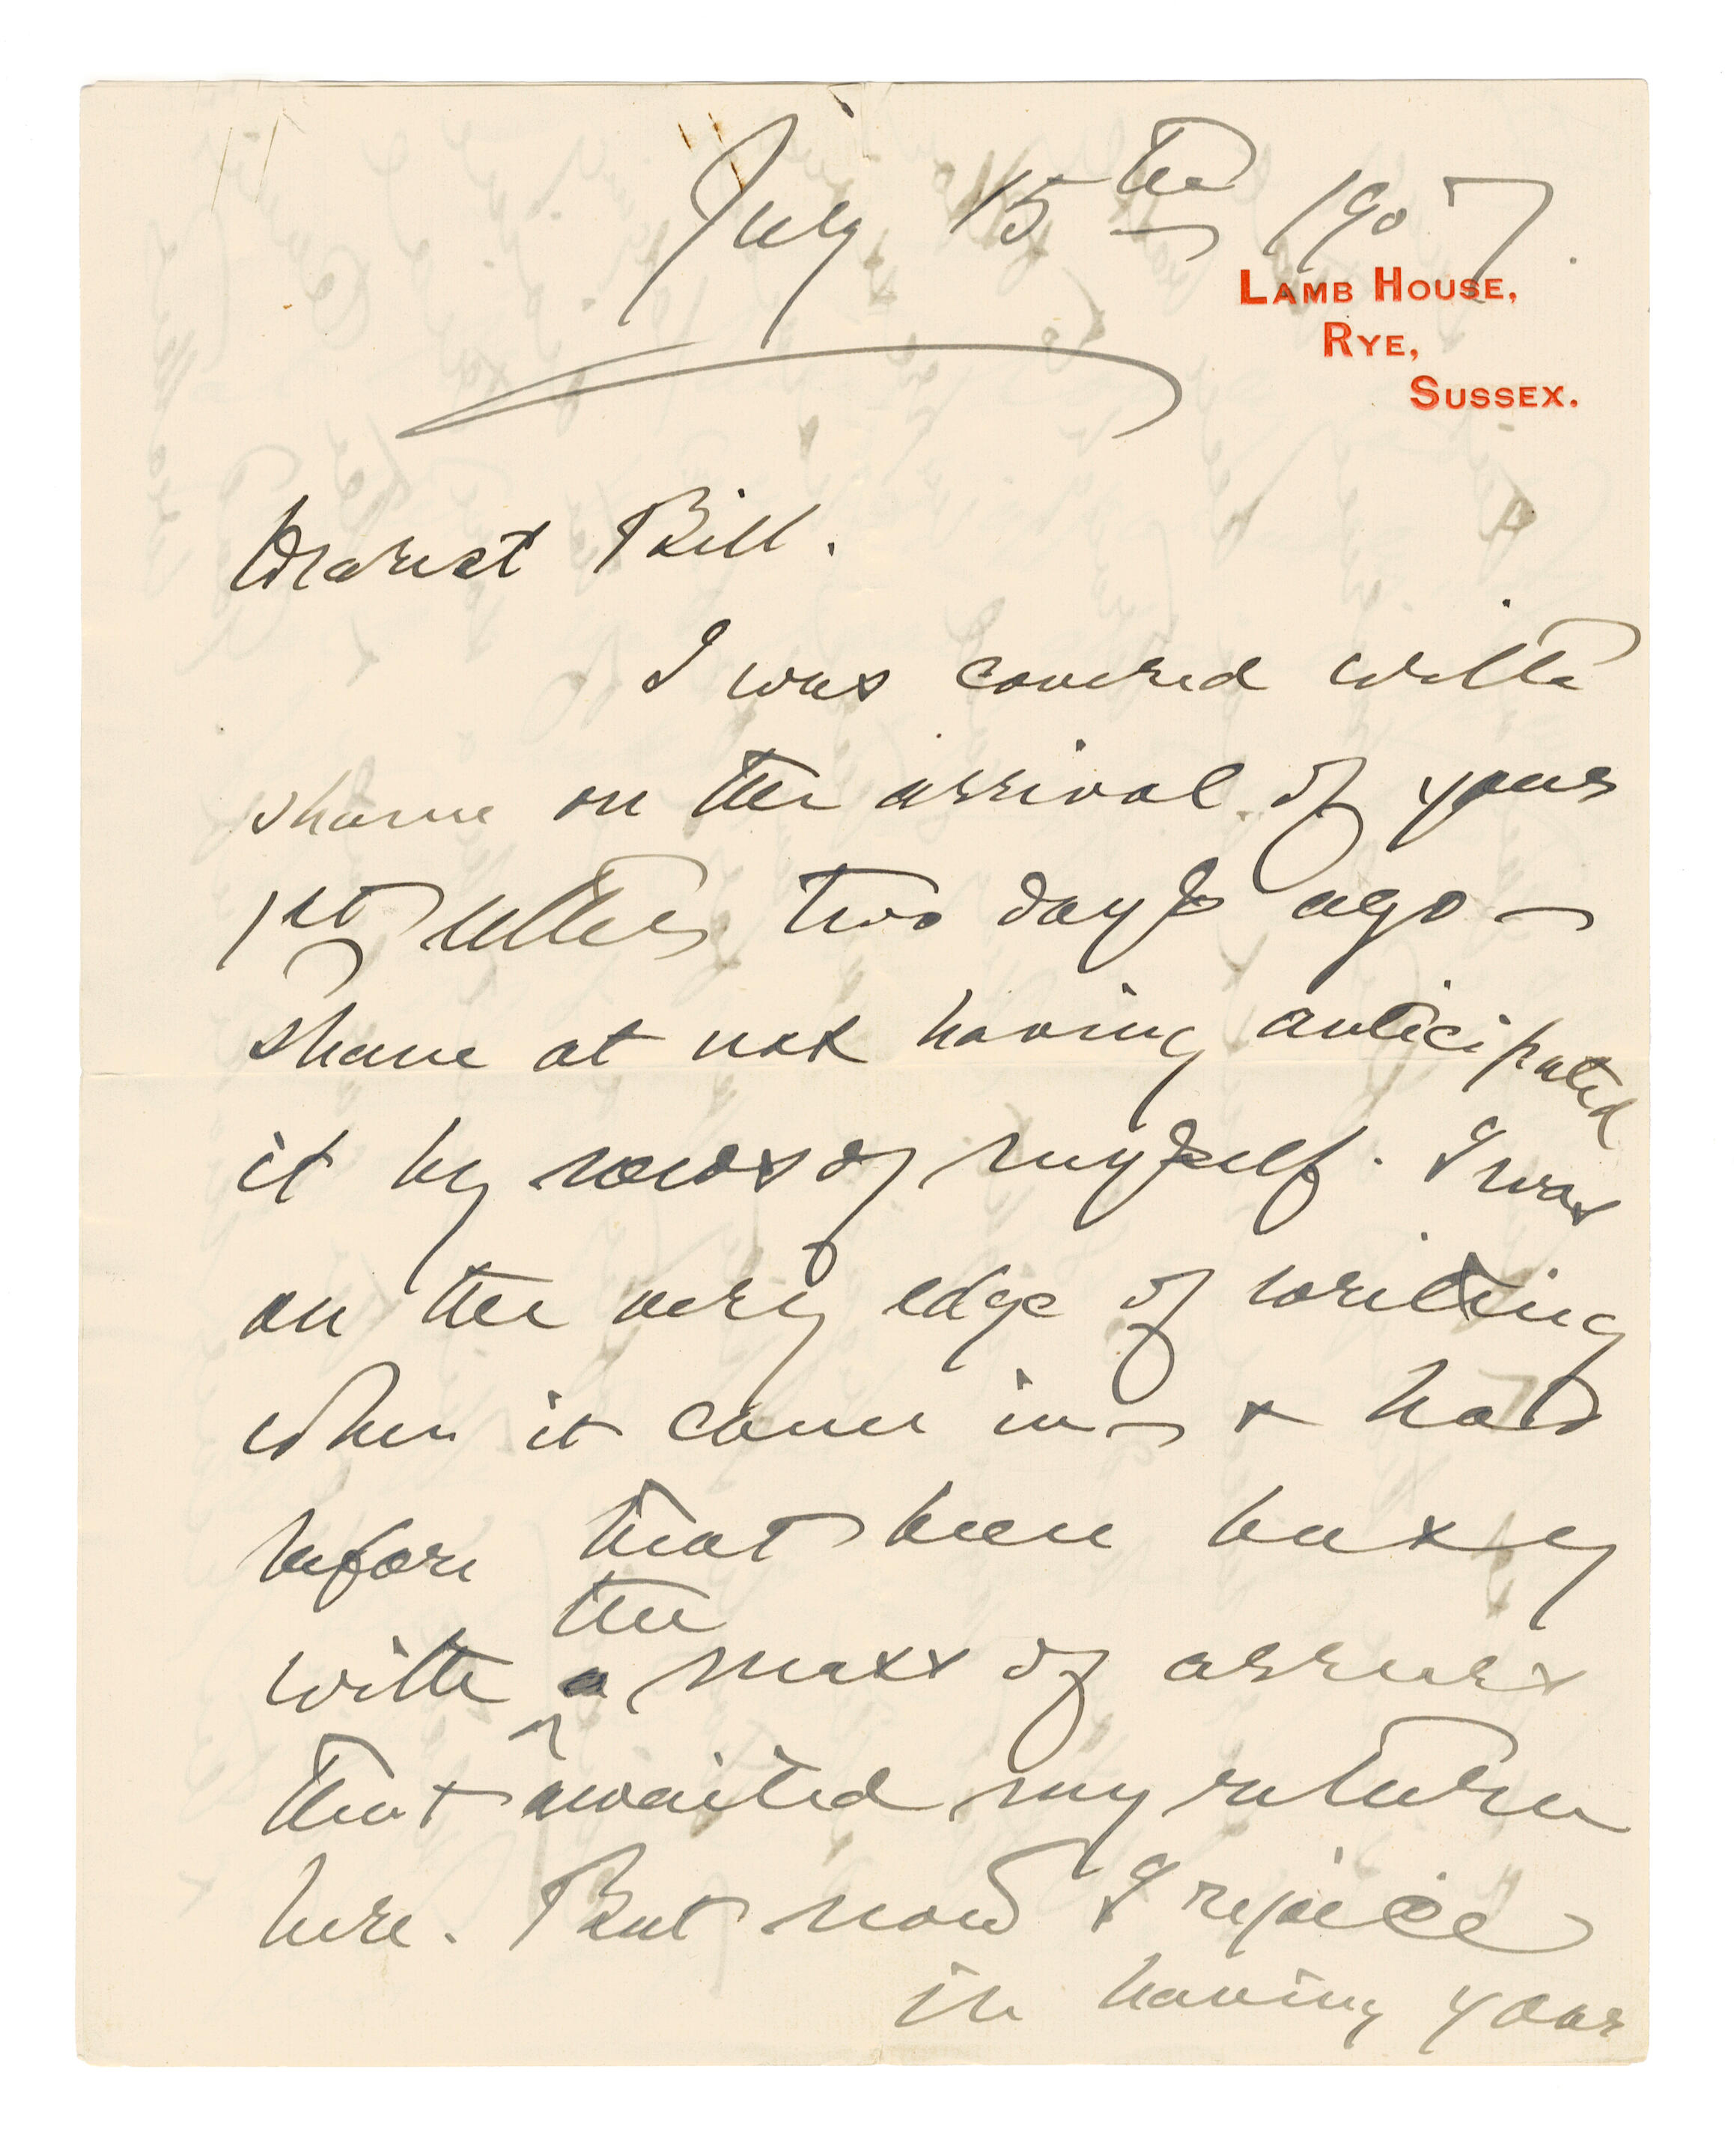 July 15th 1907.
LAMB HOUSE,
RYE,
SUSSEX.
Dearest Bill.
I was covered with
shame on the arrival of your
1st letter two days ago —
shame at not having anticipated
it by news of myself. I was
on the very edge of writing
when it came in — & had
before that been busy
with the mass of arrears
that awaited my return
here. But now I rejoice
in having your